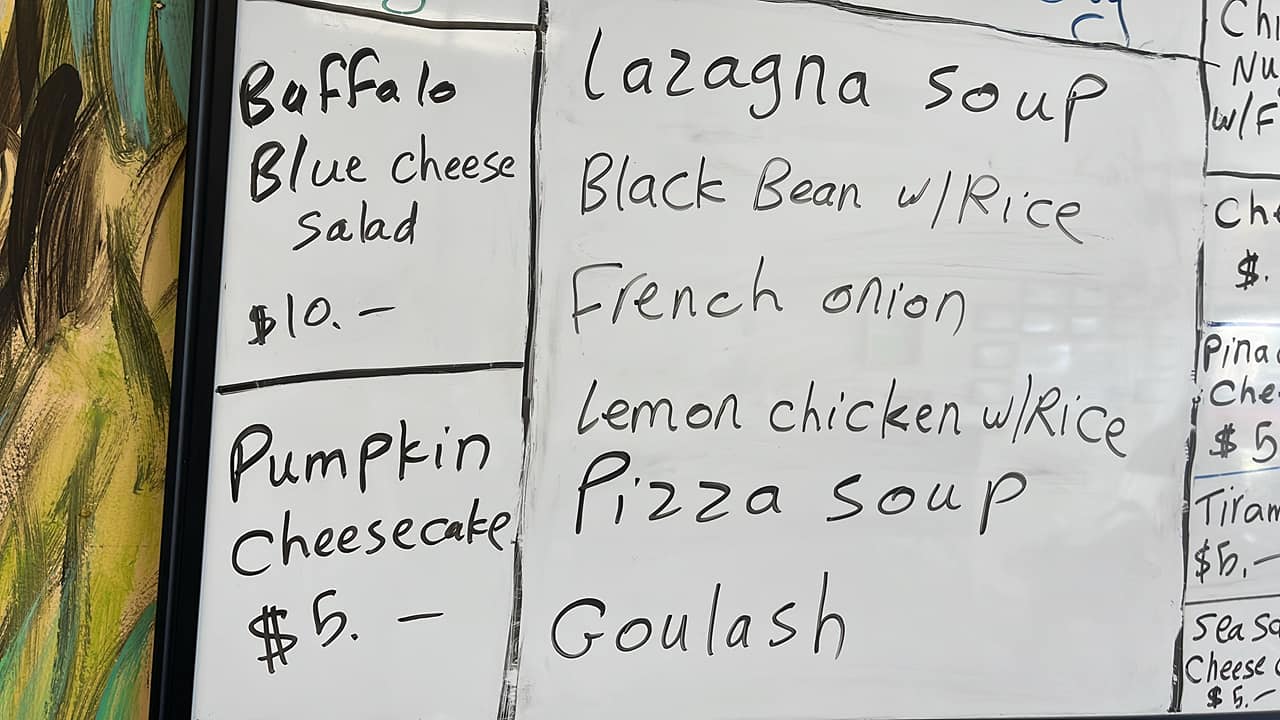 Buffalo
Blue cheese
salad
$10.-
Pumpkin
Cheesecake
$5.-
Lazagna soup
Black Bean w/Rice
French onion
Lemon chicken w/Rice
Pizza soup
Goulash
w/F
$.
Pina
$5
$5.-
Cheese
$5.-